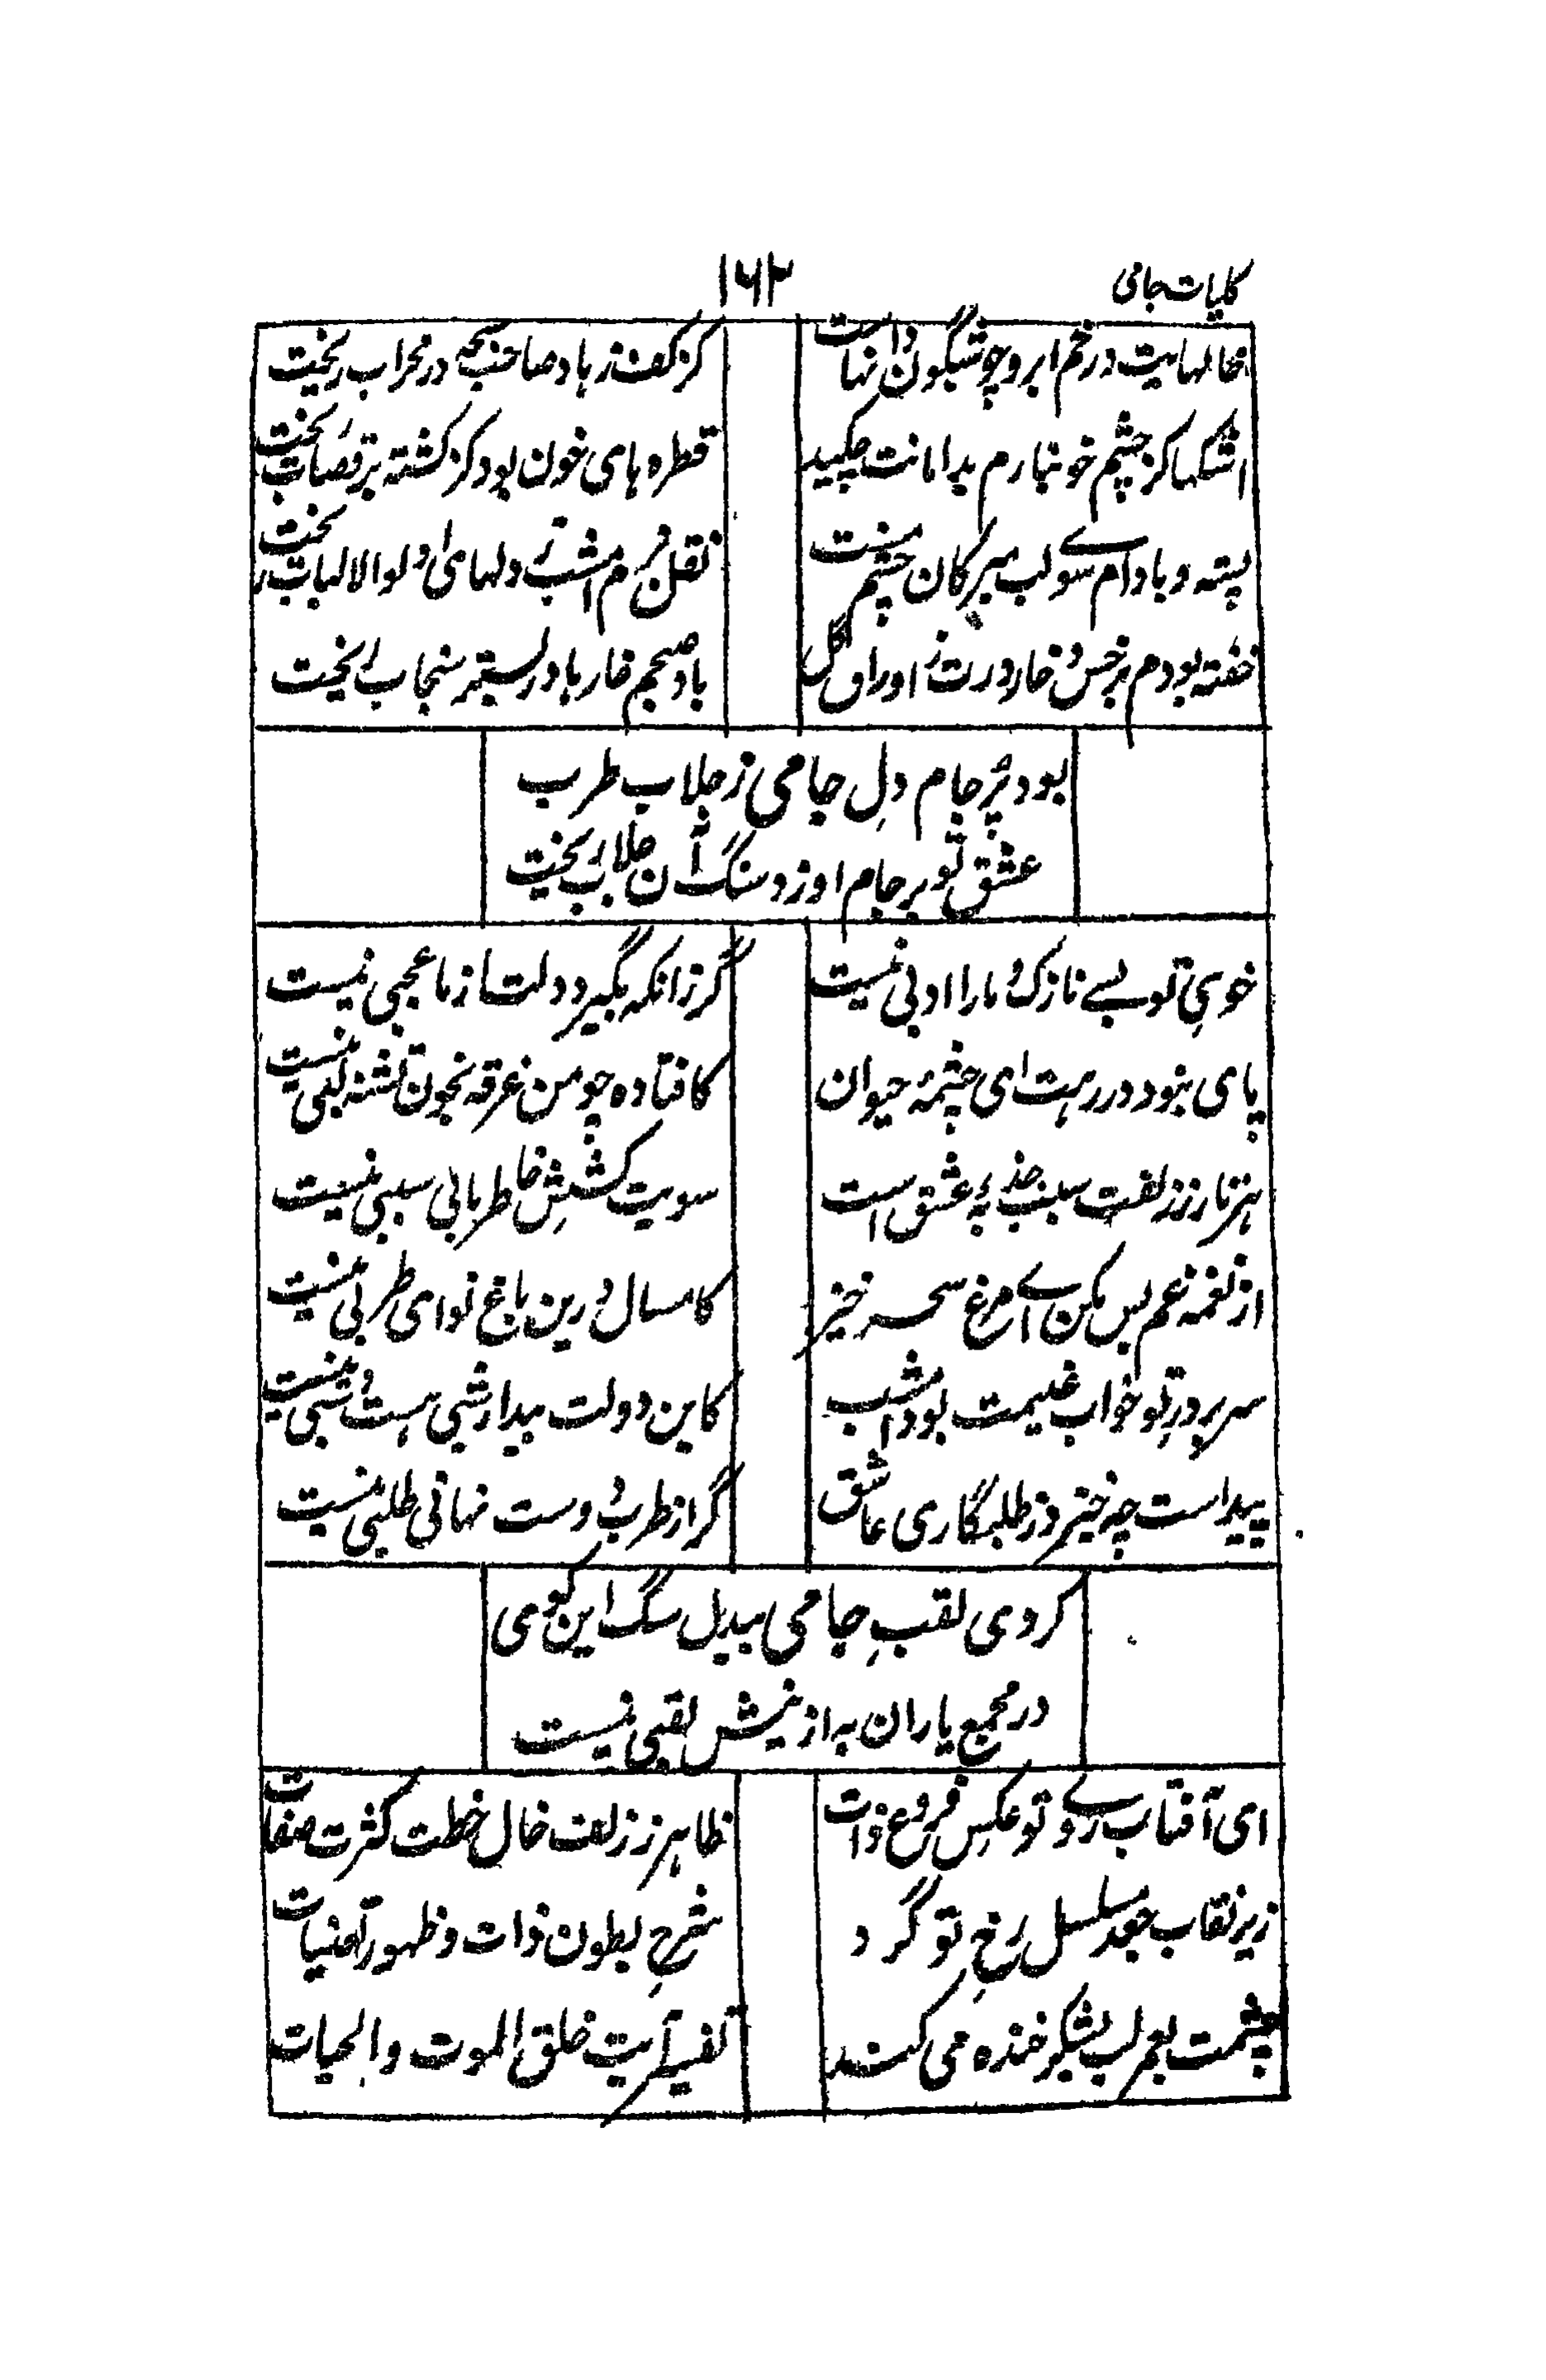 کلیات جامی
۱۶۲
خالهایت در خم ابرو چو شبگون دانهاست
کز کف زهاد صاحب سبحه در محراب ریخت
اشکها کز چشم خونبارم بدامانت چکید
قطره های خون بود کز کشته بر قصاب ریخت
پسته و بادام سوے لب مبر کان چشم مست
نقل بزم امشب ز دلهای اولوالالباب ریخت
خفته بودم بر خس و خار درت ز اوراق گل
باد صبحم خارها در بستر سنجاب ریخت
بود پُر جام دلِ جامی ز جلاب طرب
عشق تو بر جام او زد سنگ آن جلاب ریخت
خویِ تو بسے نازک و ما را ادبی نیست
گر زانکه بگیرد دلت از ما عجبی نیست
پای بنود در رهت ای چشمهٔ حیوان
کافتاده چو من غرقه بخون تشنه لبی نیست
هر تار ز زلفت سبب جذبهٔ عشق است
سویت کششِ خاطر ما بی سببی نیست
از نغمه غم بس مکن اے مرغ سحر خیز
کامسال درین باغ نوای طربی نیست
سر بر درِ تو خواب غنیمت بود امشب
کاین دولت بیدار شبی هست و شبی نیست
پیداست چه خیزد ز طلبگاری عاشق
گر از طرف دوست نهانی طلبی نیست
کردی لقبِ جامی بیدل سگ این کوی
در مجمع یاران به ازینش لقبی نیست
ای آفتاب روے تو عکسِ فروغ ذات
ظاهر ز زلف خال خطت کثرت صفات
زیر نقاب جعد مسلسل رخِ تو کرد
شرحِ بطون ذات و ظهور تعینات
چشمت بعمر لب بشکر خنده می کند
تفسیر آیت خلق الموت والحیات